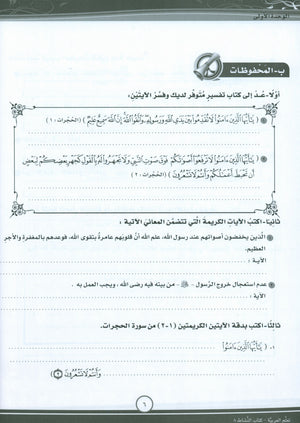 الوحدة الأولى
ب-المحفوظات
أوّلا- عُـدْ إلى كتاب تفسير مُتوفّر لديك وفسّر الآيتين:
﴿ يَا أَيُّهَا الَّذِينَ ءَامَنُوا لَا تُقَدِّمُوا بَيْنَ يَدَيِ اللَّهِ وَرَسُولِهِ وَاتَّقُوا اللَّهَ إِنَّ اللَّهَ سَمِيعٌ عَلِيمٌ ﴾ (الحجرات : ١)
﴿ يَا أَيُّهَا الَّذِينَ ءَامَنُوا لَا تَرْفَعُوا أَصْوَاتَكُمْ فَوْقَ صَوْتِ النَّبِيِّ وَلَا تَجْهَرُوا لَهُ بِالْقَوْلِ كَجَهْرِ بَعْضِكُمْ لِبَعْضٍ
أَن تَحْبَطَ أَعْمَالُكُمْ وَأَنتُمْ لَا تَشْعُرُونَ ﴾ (الحجرات : ٢)
ثانيـا- اكتبُ الآياتِ الكريمـة الّتي تتضمّـن المعاني الآتيـة :
الّذين يخفضـون أصواتهم عند رسول الله، علم الله أنّ قلوبَهم عامرةٌ بتقوى الله، فوعدهم بالمغفرة والأجر
العظيم.
الآيـة :
عدم استعجال خروج الرّسول - ﷺ - من بيته فيه رضى الله ، ويجب العمل به .
الآيـة :
ثالثًـا- اكتب بدقة الآيتين الكريمتين (١-٢) من سورة الحجرات.
١- ﴿ يَا أَيُّهَا الَّذِينَ ءَامَنُوا
وَأَنتُمْ لَا تَشْعُرُونَ
٦
تعلّم العربيّة - كتاب النّشاط ٨